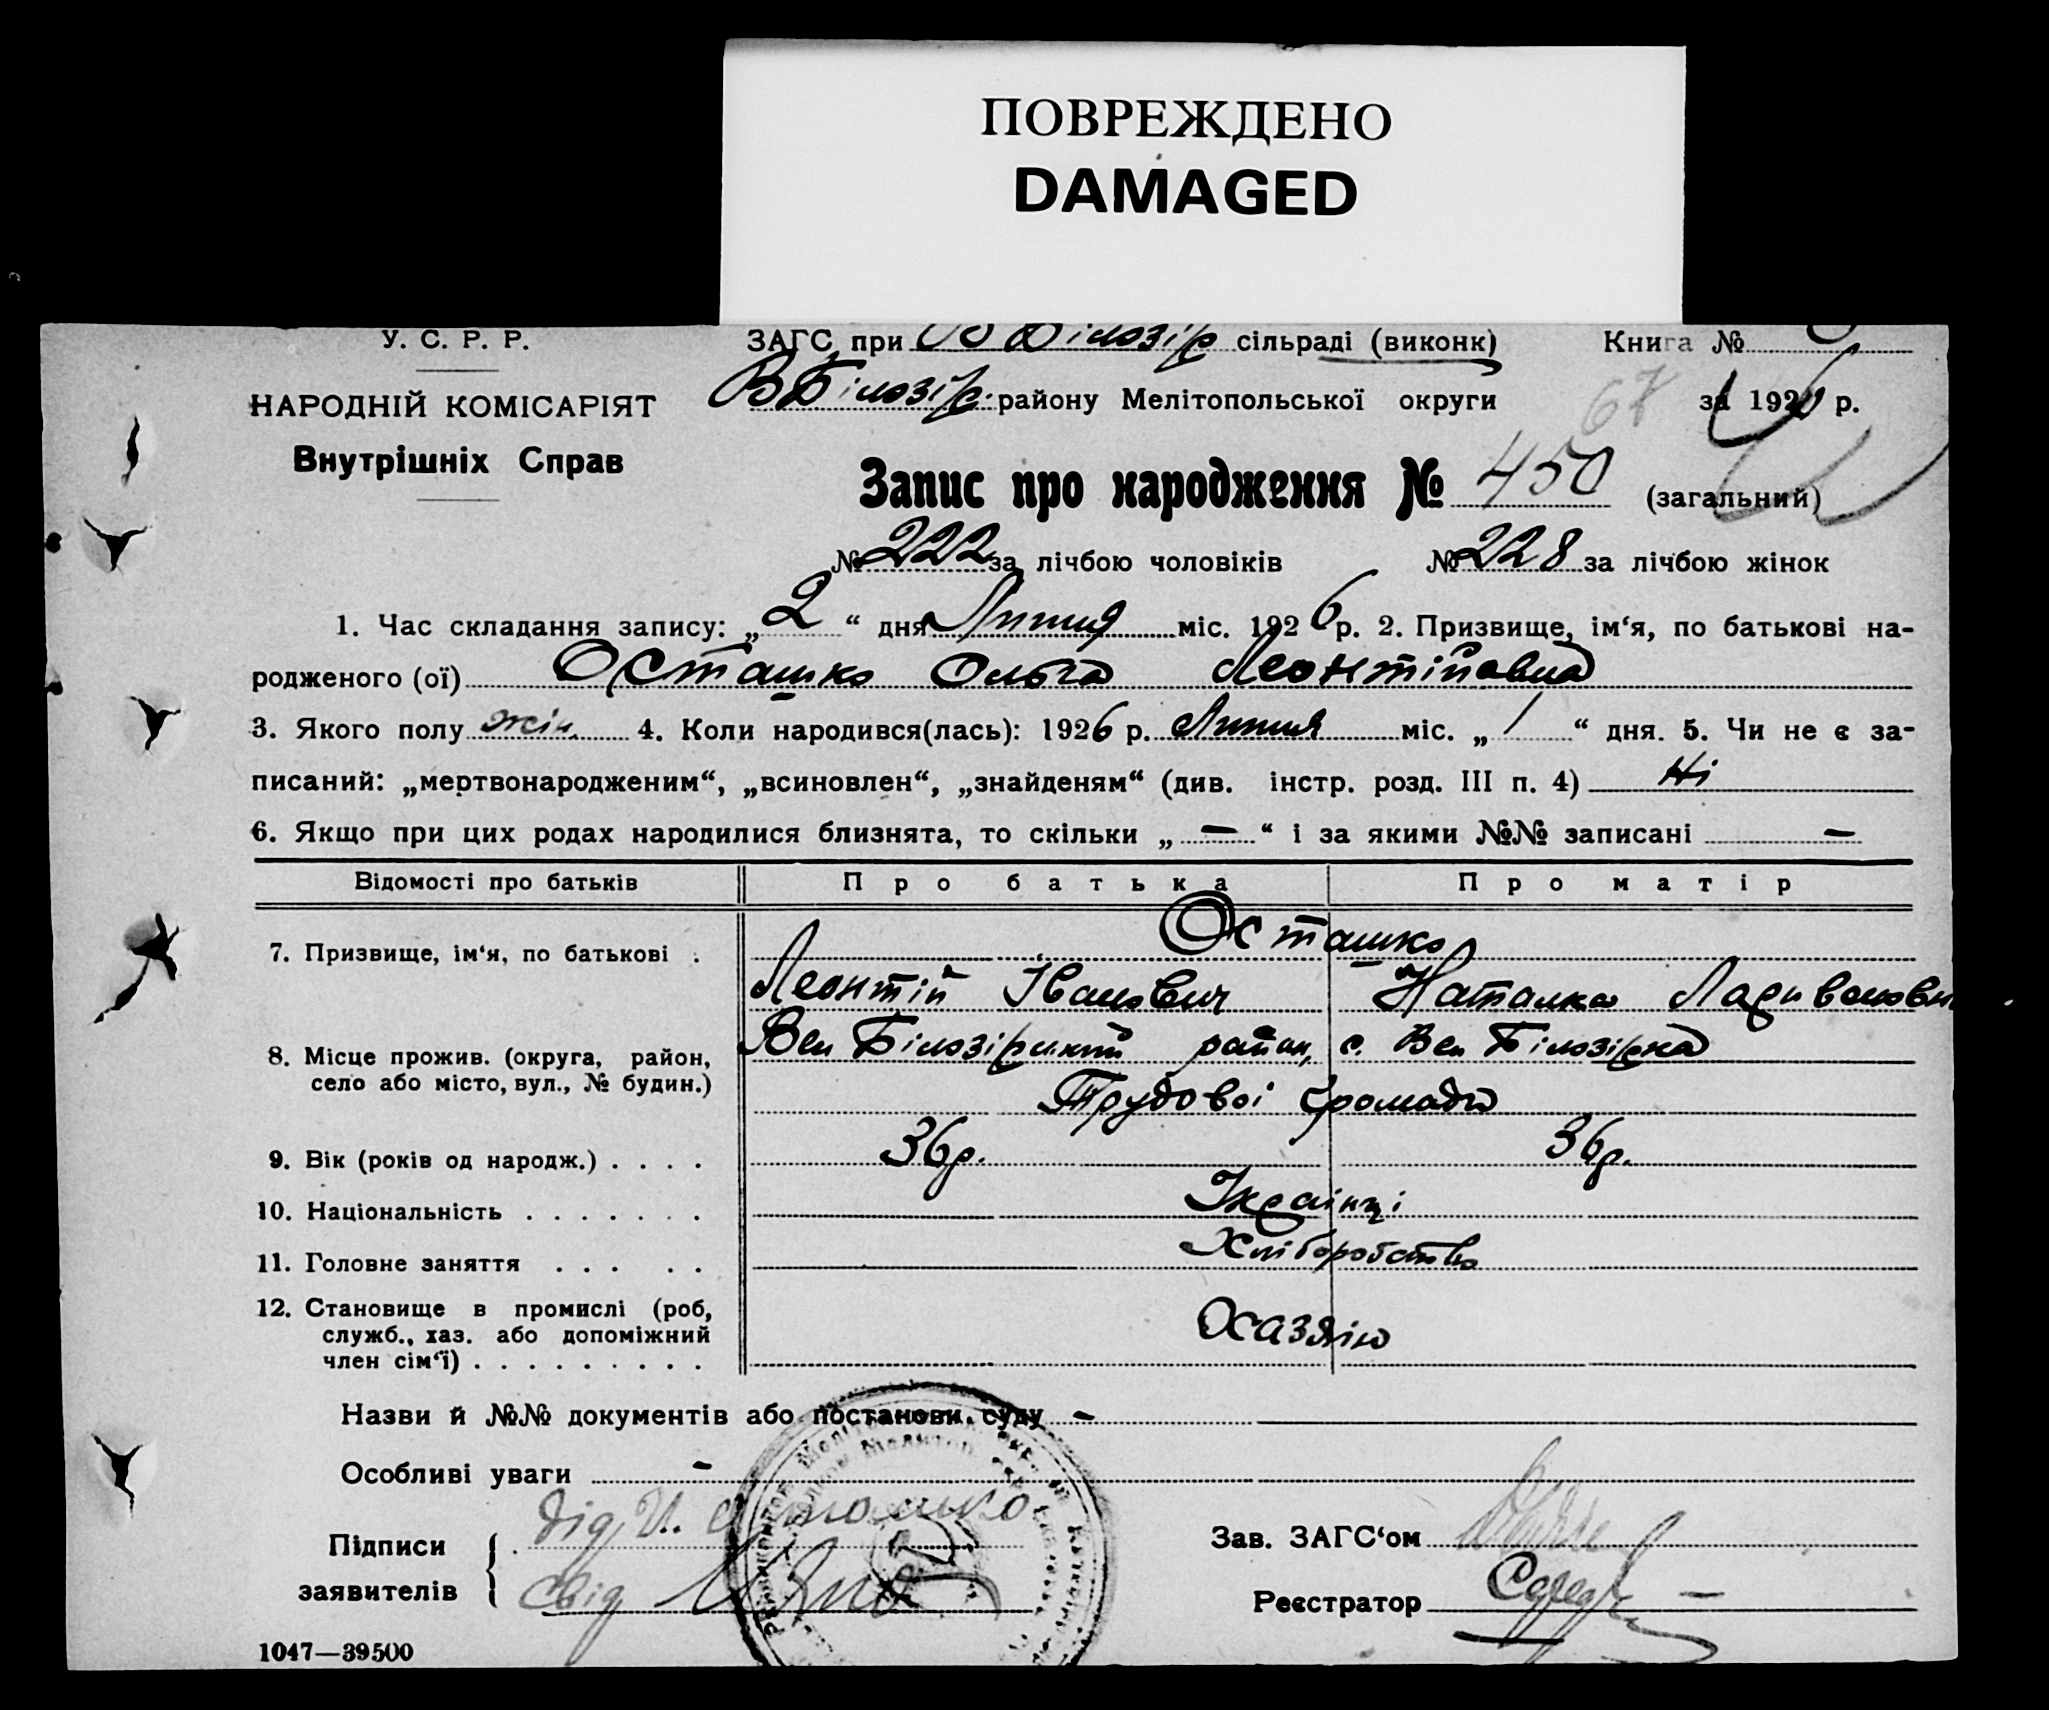 ПОВРЕЖДЕНО
DAMAGED
У. С. Р. Р.
ЗАГС при В Білозір сільраді (виконк)
Книга №
НАРОДНІЙ КОМІСАРІЯТ
Внутрішніх Справ
В Білозір. району Мелітопольської округи
67
за 1926 р.
Запис про народження № 450 (загальний)
№ 222 за лічбою чоловіків № 228 за лічбою жінок
1. Час складання запису: „ 2 “ дня Липня міс. 1926 р. 2. Призвище, ім‘я, по батькові на-
родженого (ої) Осташко Ольга Леонтійовна
3. Якого полу жін. 4. Коли народився(лась): 1926 р. Липня міс. „ 1 “ дня. 5. Чи не є за-
писаний: „мертвонародженим“, „всиновлен“, „знайденям“ (див. інстр. розд. III п. 4) Ні
6. Якщо при цих родах народилися близнята, то скільки „ — “ і за якими №№ записані —
Відомості про батьків Про батька Про матір
7. Призвище, ім‘я, по батькові . Осташко
Леонтій Іванович Наталка
8. Місце прожив. (округа, район, село або місто, вул., № будин.)
Вел Білозірський район, с. Вел Білозірка
Трудової громади
9. Вік (років од народж.) . . . . 36 р. 36 р.
10. Національність . . . . . . . Українці
11. Головне заняття . . . . . Хліборобство
12. Становище в промислі (роб,
служб., хаз. або допоміжний
член сім‘ї) . . . . . . . . . Хазяїн
Назви й №№ документів або постанови суду -
Особливі уваги -
Підписи
заявителів
дід И. Осташко
свід
Зав. ЗАГС‘ом
Реєстратор
1047—39500